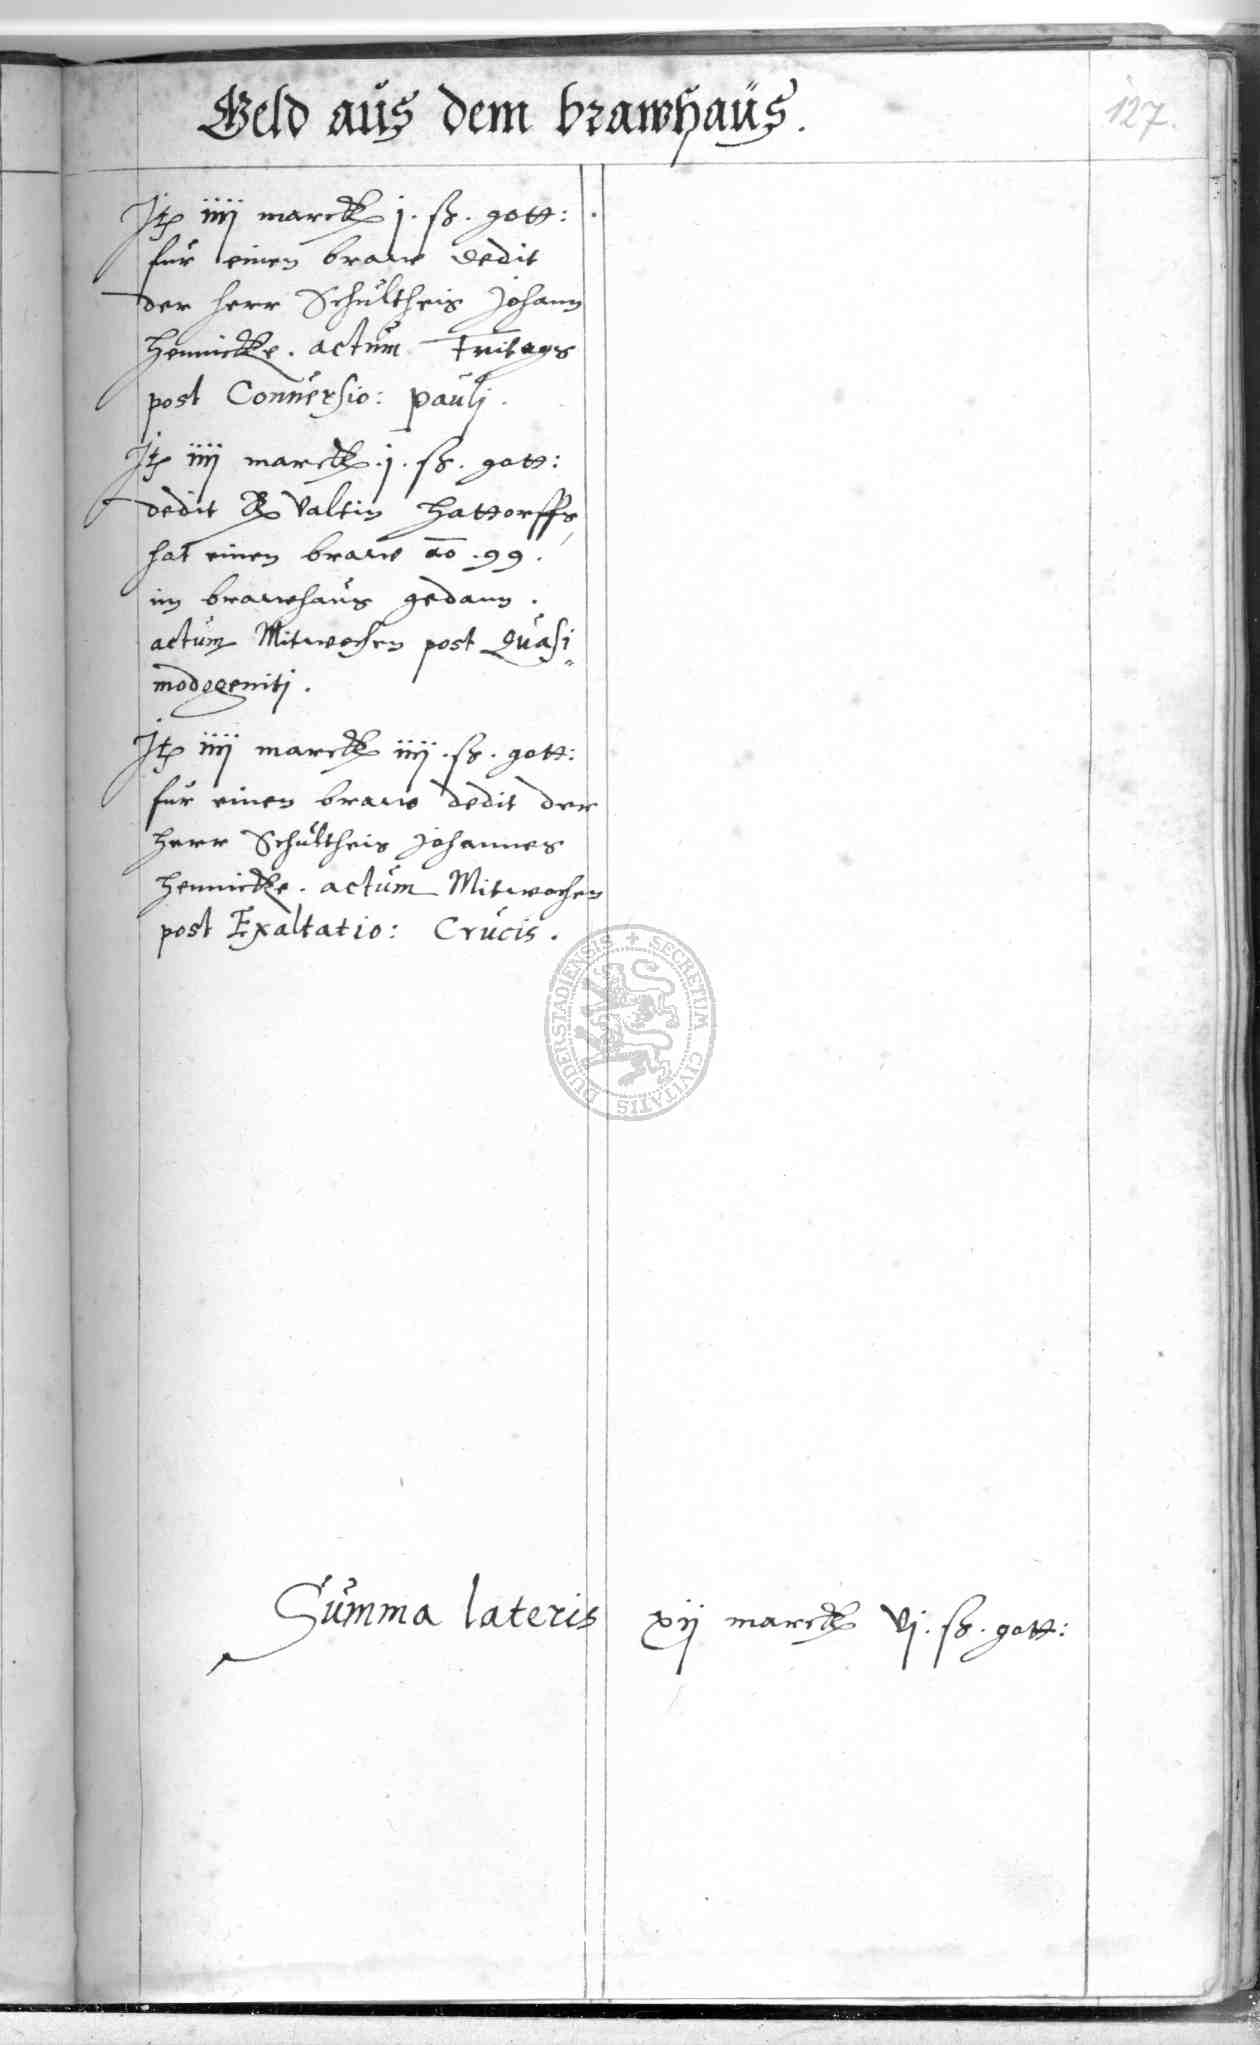 Geld aus dem brawhaus.
127.
Itē iiij marck j. ß. gott:
fur einen braw dedit
der herr Schultheis Johann
Hennicke. actum Freitags
post Conuersio: Pauli.
Itē iiij marck j. ß. gott:
dedit Valtin Hattorffs
hat einen braw ao. 99.
im brawhaus gedann.
actum Mitwochen post Quasi
modogeniti.
Itē iiij marck iiij. ß. gott:
fur einen braw dedit der
herr Schultheis Johannes
Hennicke. actum Mitwochen
post Exaltatio: Crucis.
SECRETUM CIVITATIS DUDERSTADIENSIS
Summa lateris xij marck vj. ß. gott: